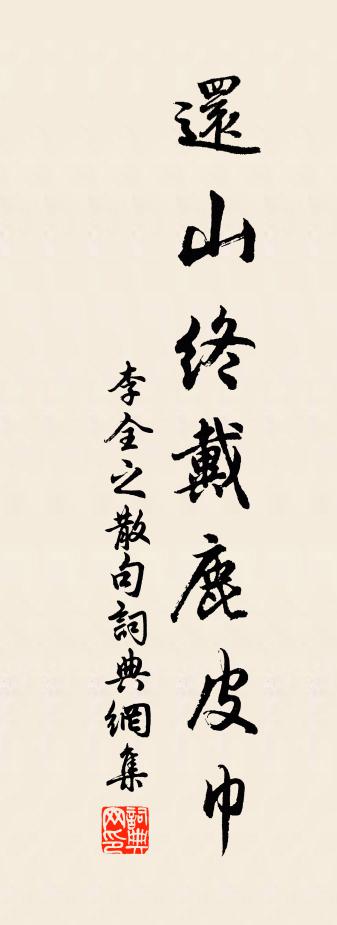 還山終戴鹿皮巾
李全之散句詞典網集
詞典網印